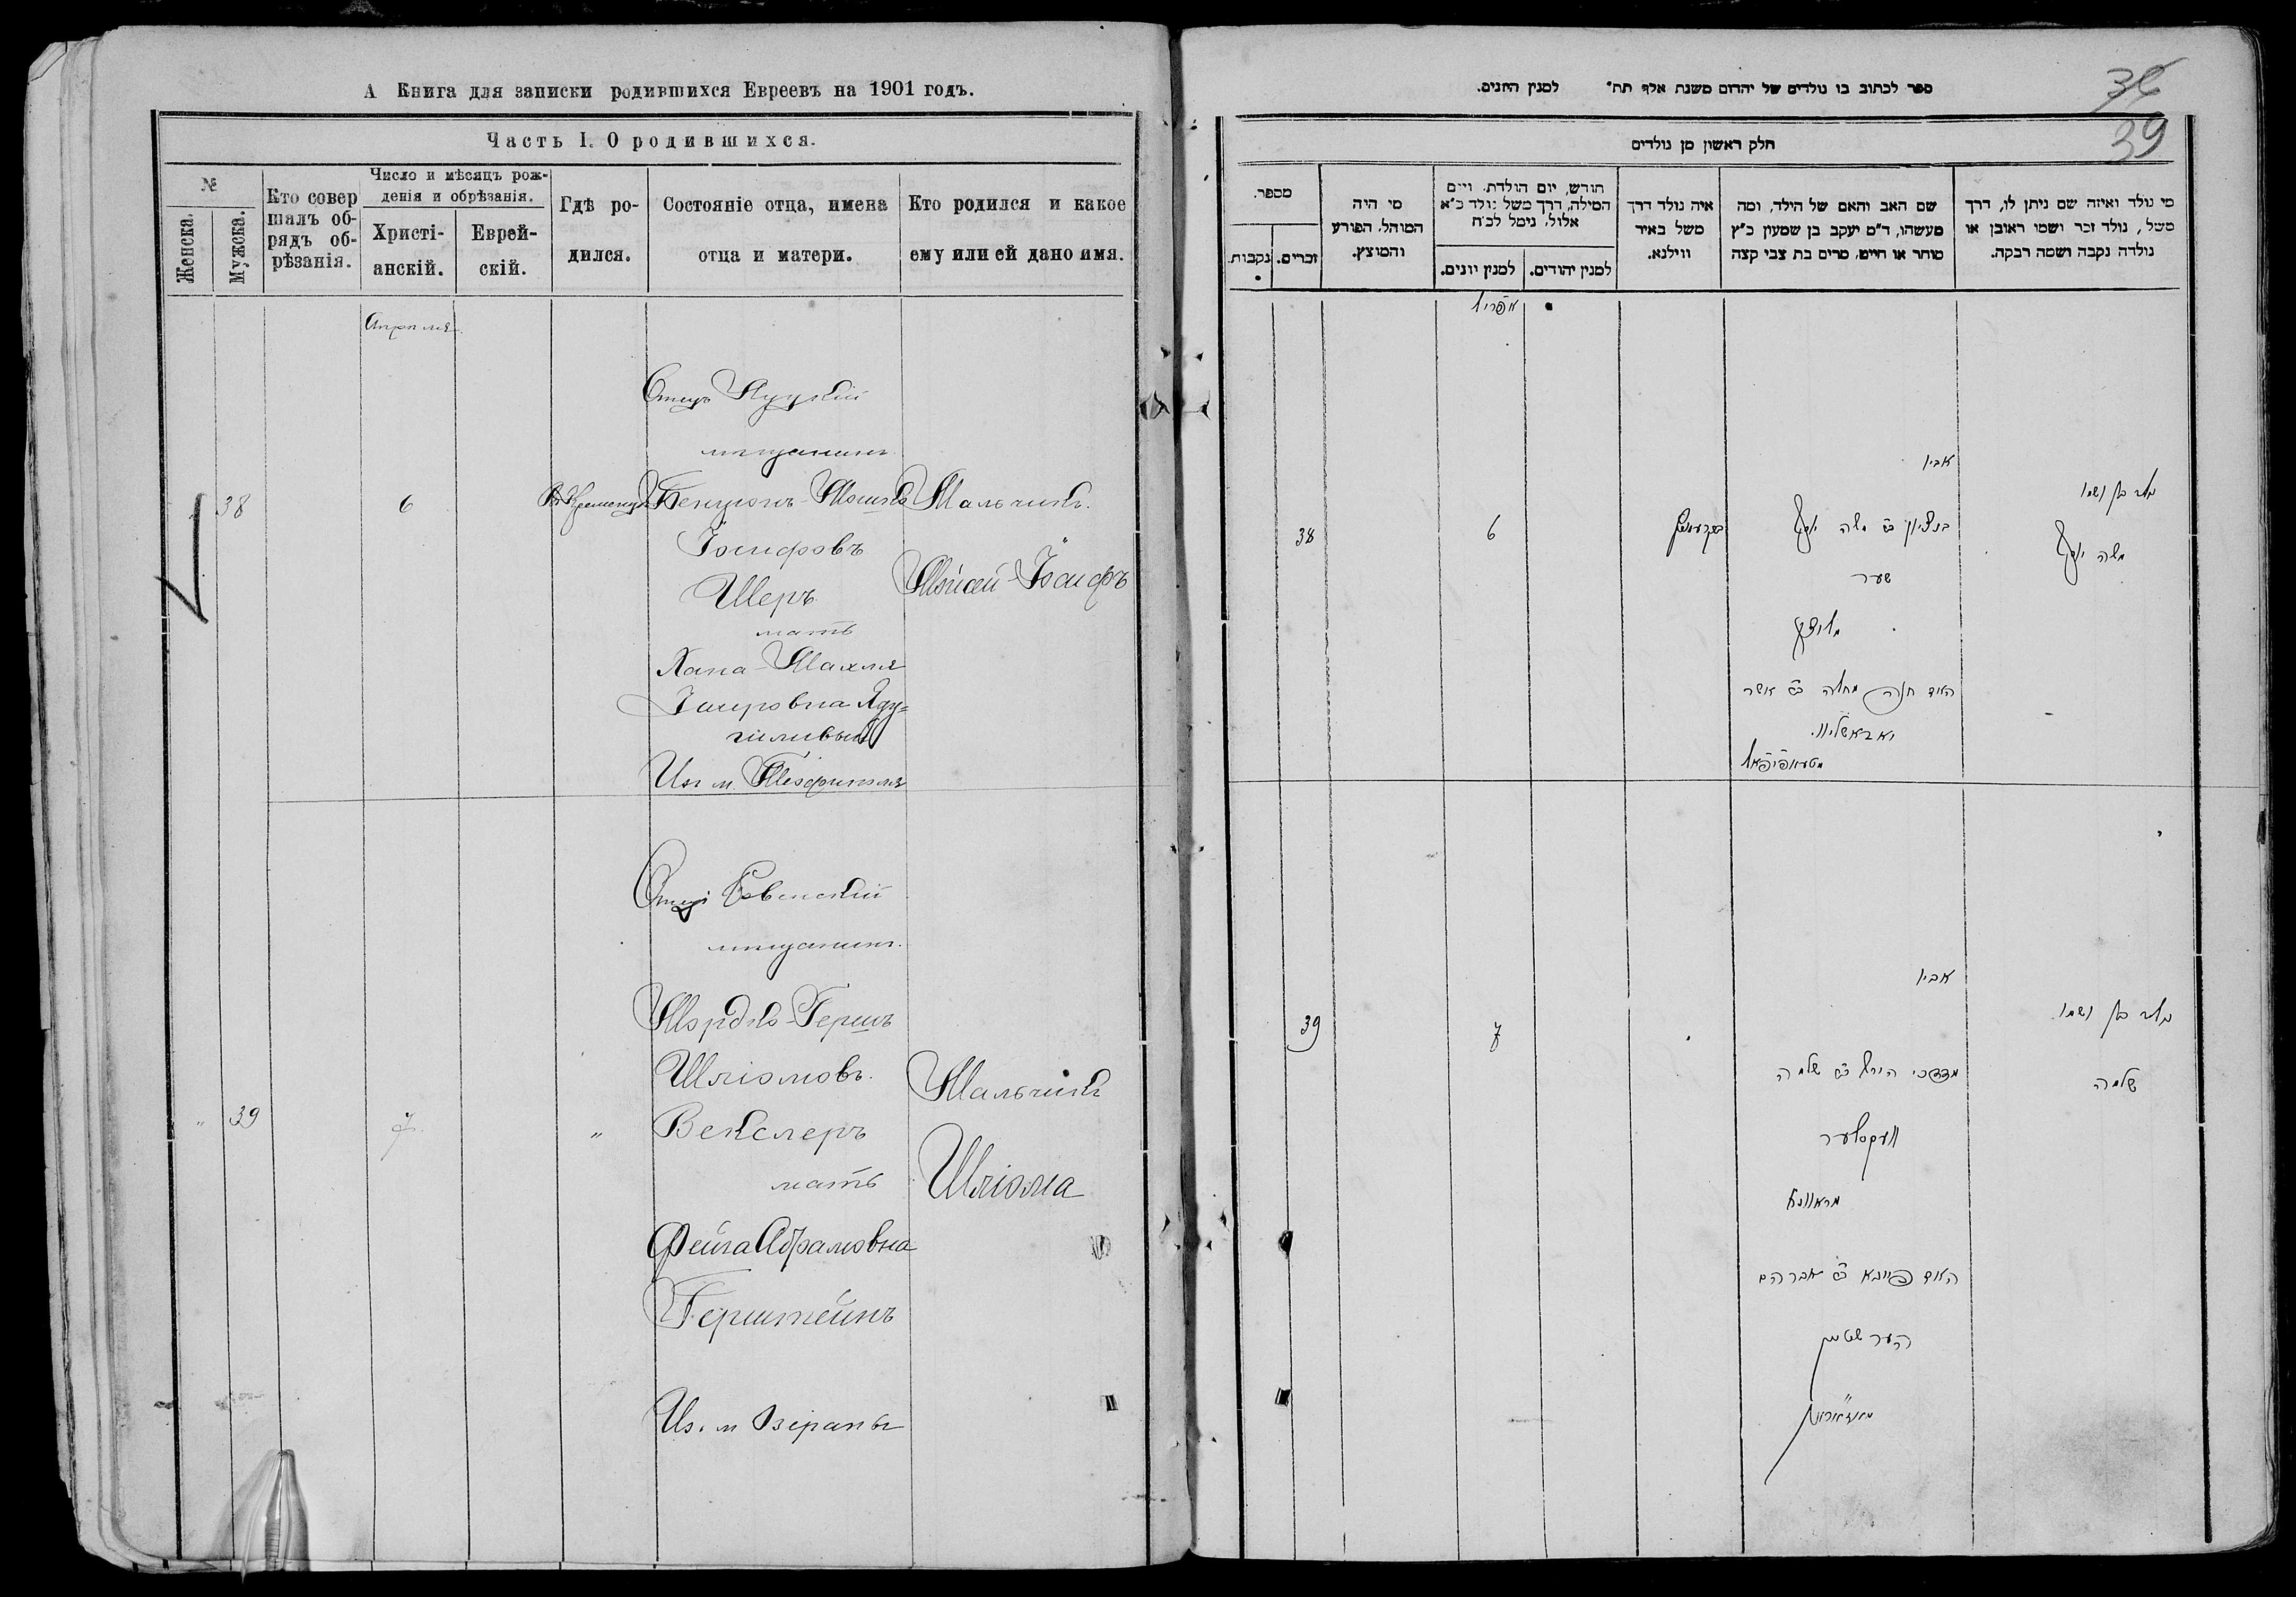 А Книга для записки родившихся Евреевъ на 1901 годъ.
Часть I. О родившихся.
№
Женска.
Мужска.
Кто совер
шалъ об-
рядъ об-
рѣзанія.
Число и мѣсяцъ рож-
денія и обрѣзанія.
Христі-
анскій.
Еврей-
скій.
Гдѣ ро-
дился.
Состояніе отца, имена
отца и матери.
Кто родился и какое
ему или ей дано имя.
Апрѣля
38
6
Въ Кременцѣ
Отецъ Луцкій
мѣщанинъ
Бенціонъ-Мошко
Іосифовъ
Шеръ
мать
Хана-Махля
Из м. Теофиполя
Мальчикъ
Мойсей-Іосифъ
"
39
7
"
Отецъ Ровенскій
мѣщанинъ
Мордко-Гершъ
Шліомовъ
Векслеръ
мать
Фейга Абрамовна
Герштейнъ
Из. м Озіраны
Мальчикъ
Шліома
ספר לכתוב בו נולדים של יהדום משנת אלף תת" למנין היונים.
36
39
חלק ראשון מן נולדים
מספר.
נקבות.
זכרים.
מי היה
המוהל, הפורע
והמוצץ.
חודש, יום הולדת, ויום
המילה, דרך משל נולד כ"א
אלול, נימל לכ"ח
למנין יונים.
למנין יהודים.
איה נולד דרך
משל באיר
ווילנא.
שם האב והאם של הילד, ומה
מעשהו, ד"מ יעקב בן שמעון כ"ץ
סוחר או חייט, מרים בת צבי קצה
מי נולד ואיזה שם ניתן לו, דרך
משל, נולד זכר ושמו ראובן או
נולדה נקבה ושמה רבקה.
אפריל
38
6
בקרעמניץ
אביו
בנציון ב"ר משה יוסף
שער
מלוצק
האם חנה מחלה ב"ר אשר
מטעאפיפאל
נולד בן ושמו
משה יוסף
39
7
אביו
מרדכי הירש ב"ר שלמה
וועקסלער
מראוונא
האם פייגא ב"ר אברהם
הערשטיין
נולד בן ושמו
שלמה